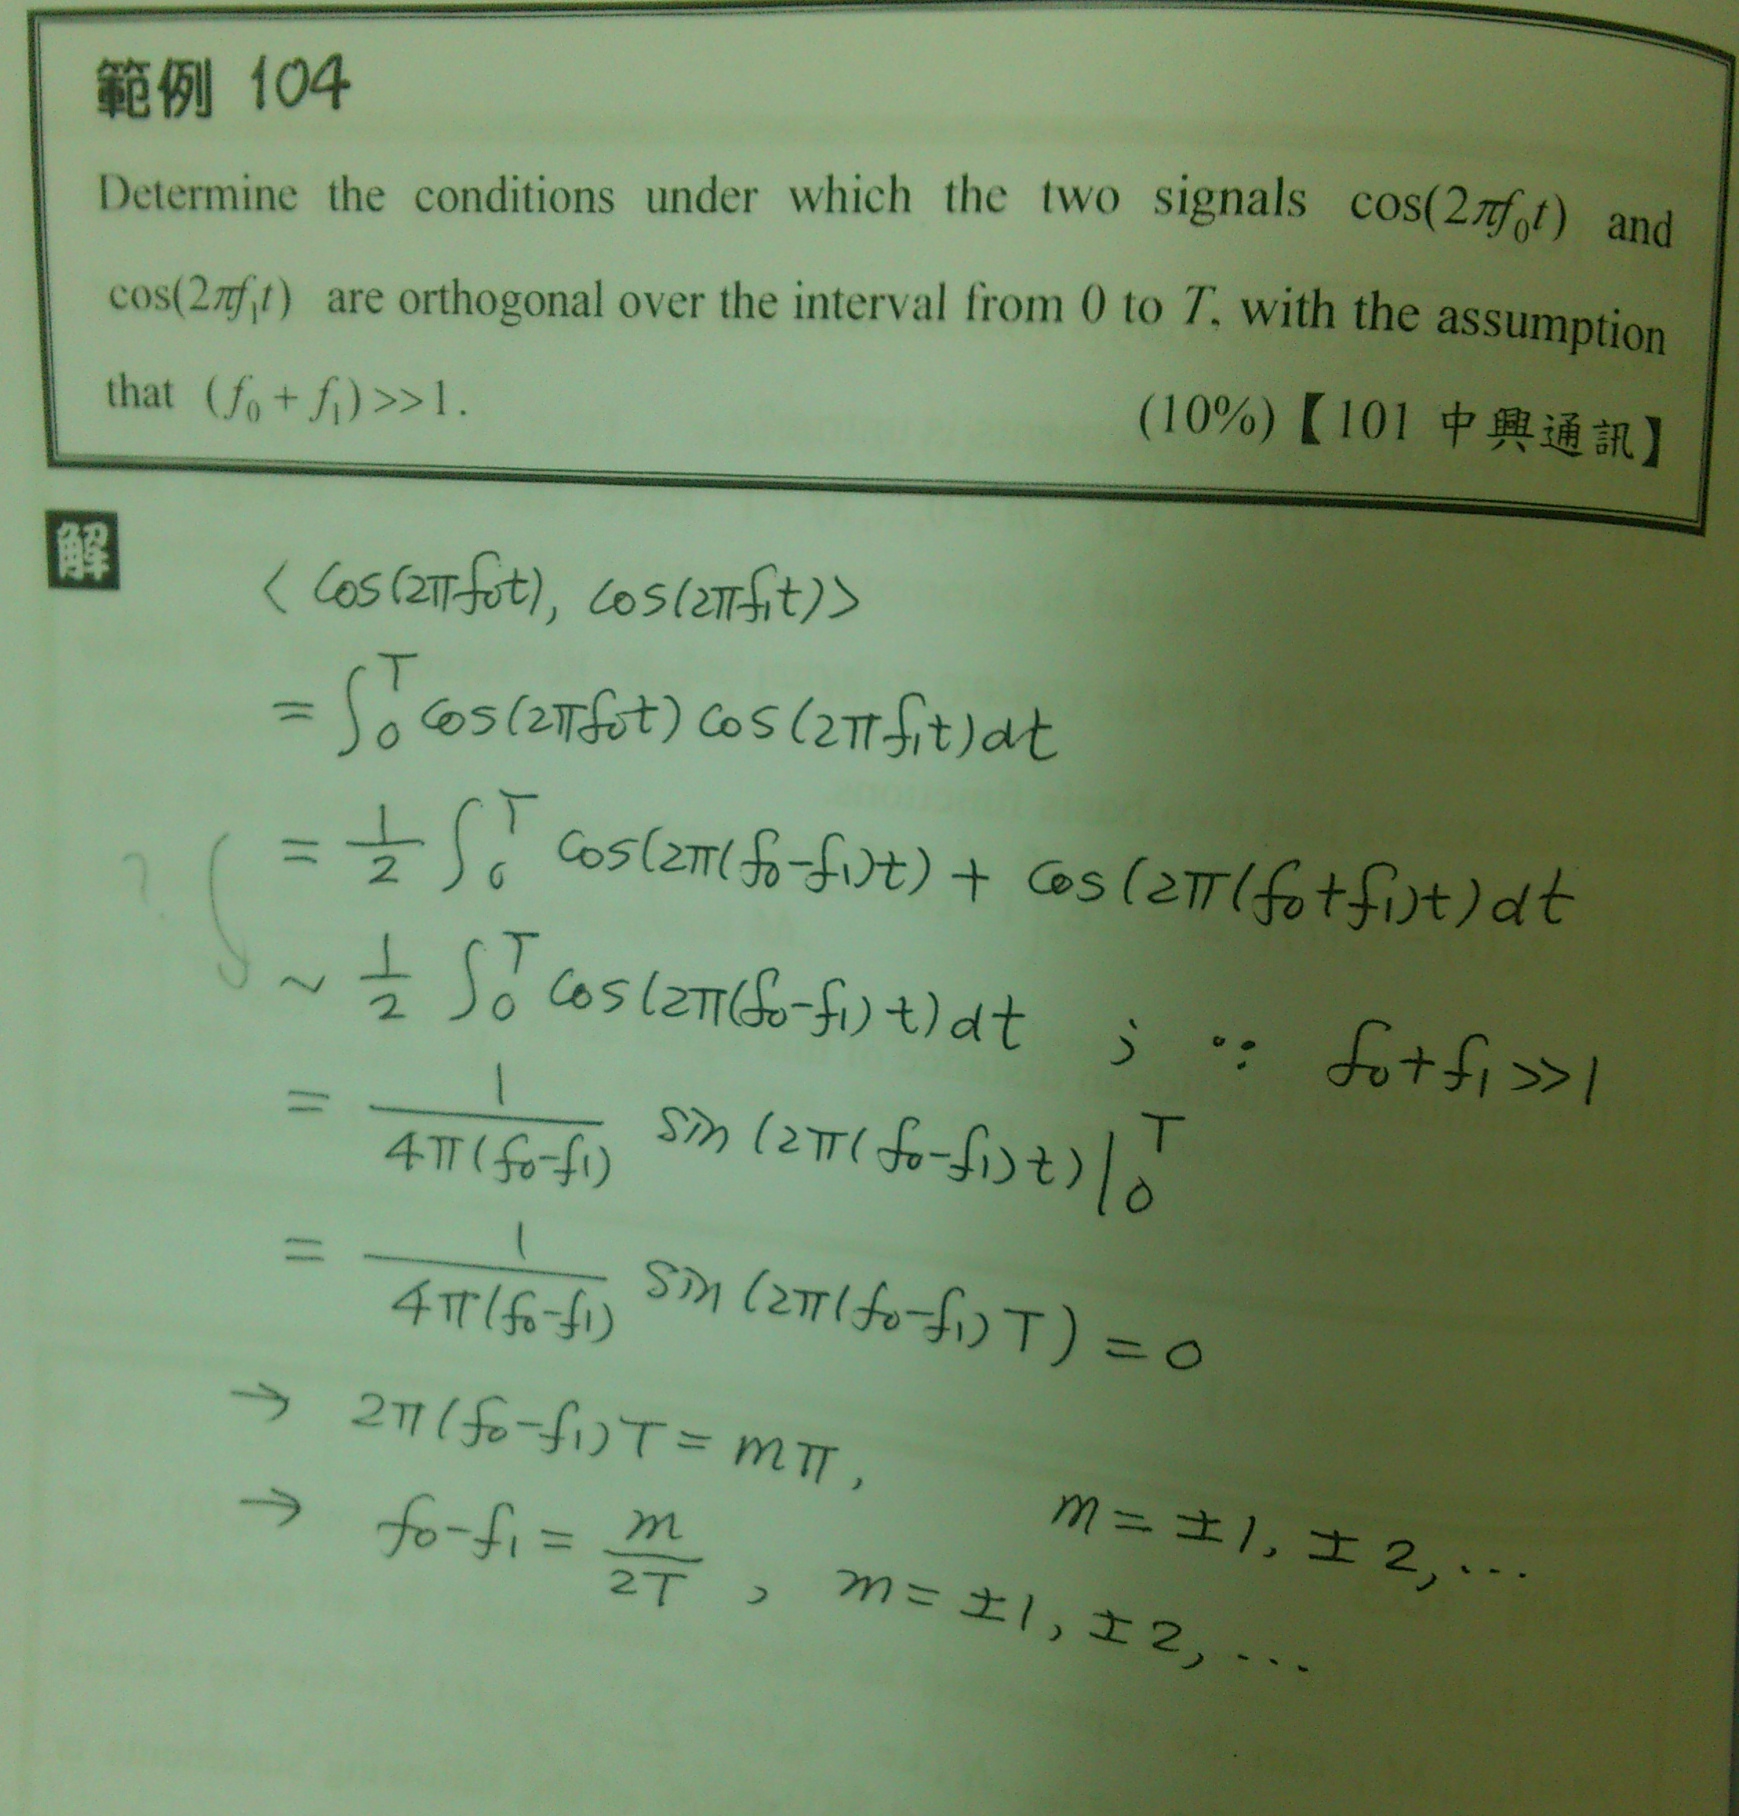 範例 104
Determine the conditions under which the two signals cos(2πf₀t) and
cos(2πf₁t) are orthogonal over the interval from 0 to T, with the assumption
that (f₀ + f₁) >> 1.
(10%)【101 中興通訊】
解
< cos(2πf₀t), cos(2πf₁t) >
= ∫₀ᵀ cos(2πf₀t) cos(2πf₁t)dt
= 1/2 ∫₀ᵀ cos(2π(f₀-f₁)t) + cos(2π(f₀+f₁)t)dt
?
~ 1/2 ∫₀ᵀ cos(2π(f₀-f₁)t)dt ; ∵ f₀+f₁ >> 1
= 1/4π(f₀-f₁) sin(2π(f₀-f₁)t)|₀ᵀ
= 1/4π(f₀-f₁) sin(2π(f₀-f₁)T) = 0
→ 2π(f₀-f₁)T = mπ, m = ±1, ±2, ...
→ f₀-f₁ = m/2T , m = ±1, ±2, ...